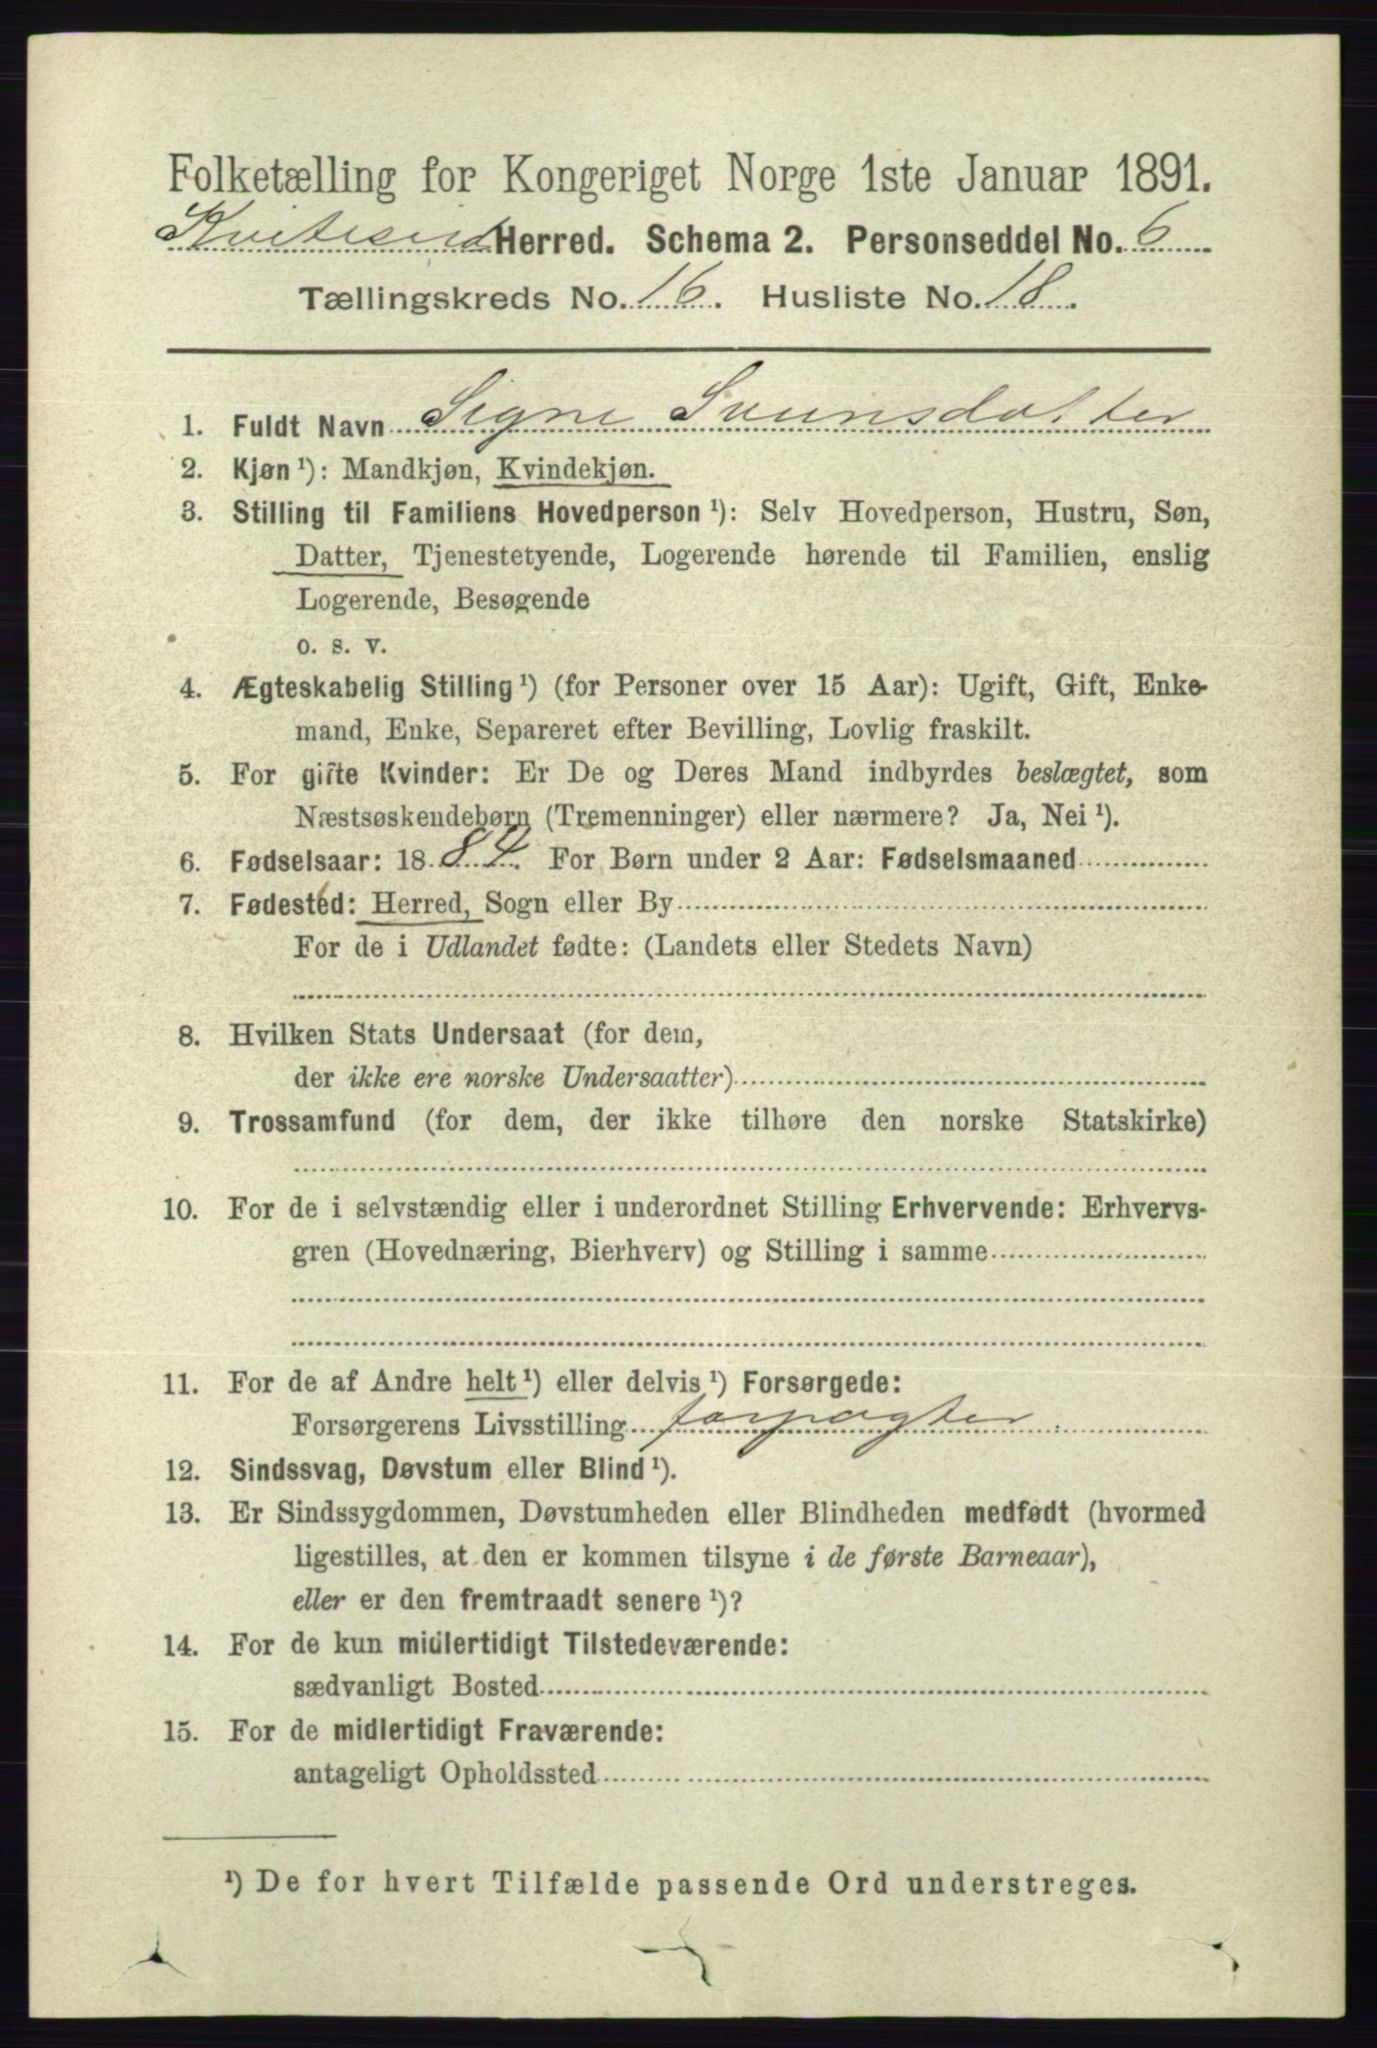 Folketælling for Kongeriget Norge 1ste Januar 1891.
Kviteseid Herred. Schema 2. Personseddel No. 6
Tællingskreds No. 16. Husliste No. 18.
1. Fuldt Navn Signe Svensdatter
2. Kjøn ¹): Mandkjøn, Kvindekjøn.
3. Stilling til Familiens Hovedperson ¹): Selv Hovedperson, Hustru, Søn,
Datter, Tjenestetyende, Logerende hørende til Familien, enslig
Logerende, Besøgende
o. s. v.
4. Ægteskabelig Stilling ¹) (for Personer over 15 Aar): Ugift, Gift, Enke-
mand, Enke, Separeret efter Bevilling, Lovlig fraskilt.
5. For gifte Kvinder: Er De og Deres Mand indbyrdes beslægtet, som
Næstsøskendebørn (Tremenninger) eller nærmere? Ja, Nei ¹).
6. Fødselsaar: 1884. For Børn under 2 Aar: Fødselsmaaned
7. Fødested: Herred, Sogn eller By
For de i Udlandet fødte: (Landets eller Stedets Navn)
8. Hvilken Stats Undersaat (for dem,
der ikke ere norske Undersaatter)
9. Trossamfund (for dem, der ikke tilhøre den norske Statskirke)
10. For de i selvstændig eller i underordnet Stilling Erhvervende: Erhvervs-
gren (Hovednæring, Bierhverv) og Stilling i samme
11. For de af Andre helt ¹) eller delvis ¹) Forsørgede:
Forsørgerens Livsstilling forpagter
12. Sindssvag, Døvstum eller Blind ¹).
13. Er Sindssygdommen, Døvstumheden eller Blindheden medfødt (hvormed
ligestilles, at den er kommen tilsyne i de første Barneaar),
eller er den fremtraadt senere ¹)?
14. For de kun midlertidigt Tilstedeværende:
sædvanligt Bosted
15. For de midlertidigt Fraværende:
antageligt Opholdssted
¹) De for hvert Tilfælde passende Ord understreges.